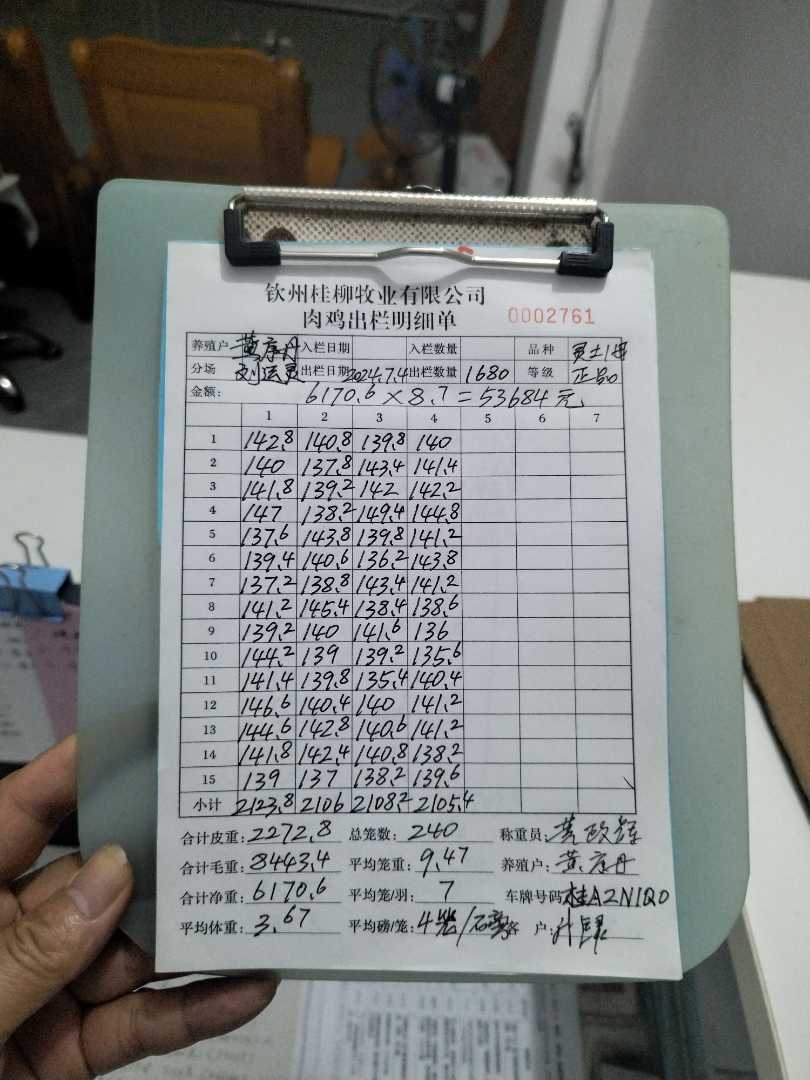 钦州桂柳牧业有限公司
肉鸡出栏明细单 0002761
养殖户 黄序丹 入栏日期 入栏数量 品种
分场 刘运灵 出栏日期 2024.7.4 出栏数量 1680 等级 正品
金额: 6170.6×8.7=53684元
1 2 3 4 5 6 7
1 142.8 140.8 139.8 140
2 140 137.8 143.4 141.4
3 141.8 139.2 142 142.2
4 147 138.2 149.4 144.8
5 137.6 143.8 139.8 141.2
6 139.4 140.6 136.2 143.8
7 137.2 138.8 143.4 141.2
8 141.2 145.4 138.4 138.6
9 139.2 140 141.6 136
10 144.2 139 139.2 135.6
11 141.4 139.8 135.4 140.4
12 146.6 140.4 140 141.2
13 144.6 142.8 140.6 141.2
14 141.8 142.4 140.8 138.2
15 139 137 138.2 139.6
小计 2123.8 2106 2108.2 2105.4
合计皮重: 2272.8 总笼数: 240 称重员: 黄政辉
合计毛重: 8443.4 平均笼重: 9.47 养殖户: 黄序丹
合计净重: 6170.6 平均笼/羽: 7 车牌号码 桂A2N1Q0
平均体重: 3.67 平均磅/笼: 4 户: